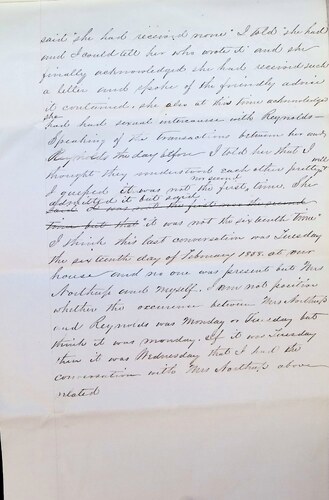 said "she had received none" I told "she had"
and I could tell her who wrote it and she
finally acknowledged she had received such
a letter and spoke of the friendly advice
it contained. she also at this time acknowledged
she
had had sexual intercourse with Reynolds—
Speaking of the transactions between her and
Reynolds the day before I told her that I
thought they understood each other pretty well
no second
I guessed it was not the first time. She
admitted it but said
said it was not the first nor the second
time but that "it was not the sixteenth time"
I think this last conversation was Tuesday
the sixteenth day of February 1858. at our
house and no one was present but Mrs
Northup and myself. I am not positive
whether the occurrence between Mrs Northup
and Reynolds was Monday or Tuesday but
think it was monday. If it was Tuesday
then it was Wednesday that I had the
conversation with Mrs Northup above
related